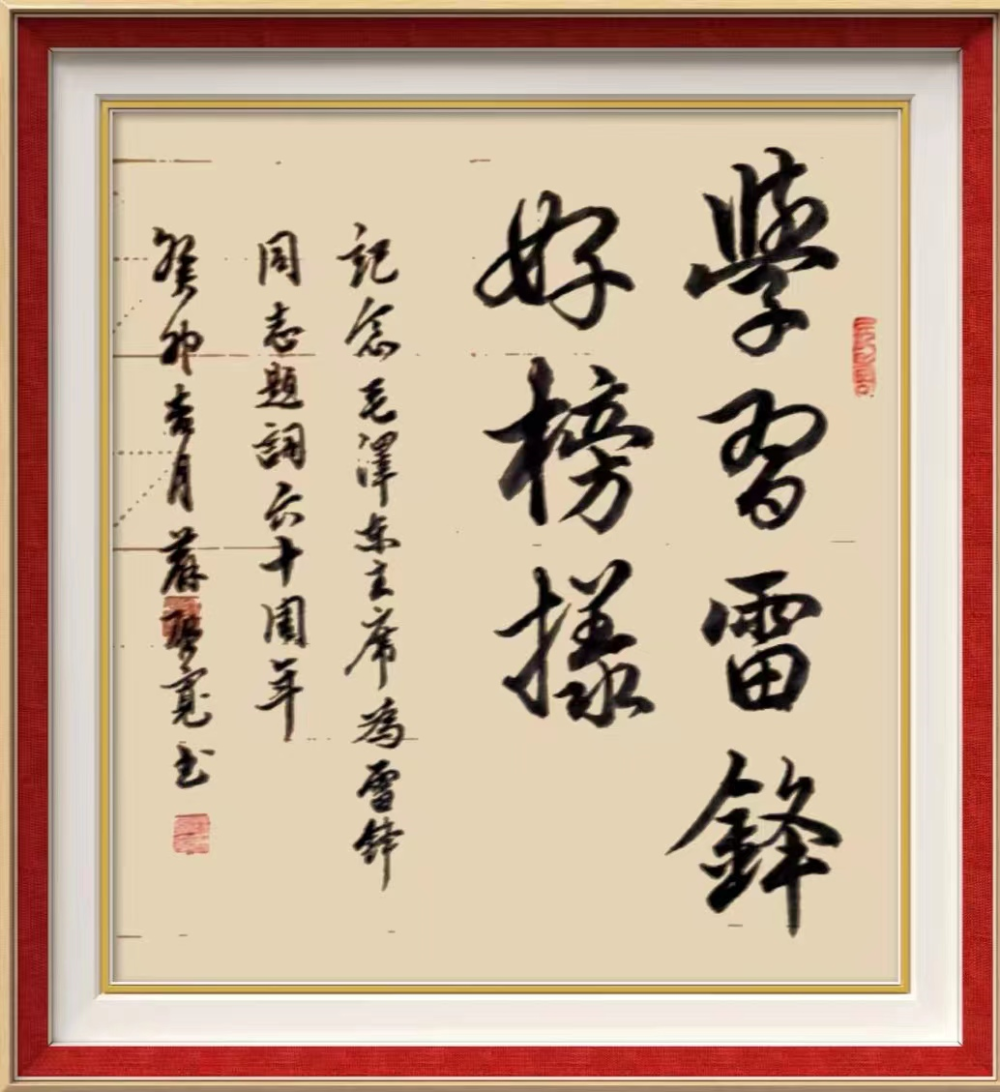 學習雷鋒
好榜樣
記念毛澤东主席為雷鋒
同志題詞六十周年
癸卯杏月寬书